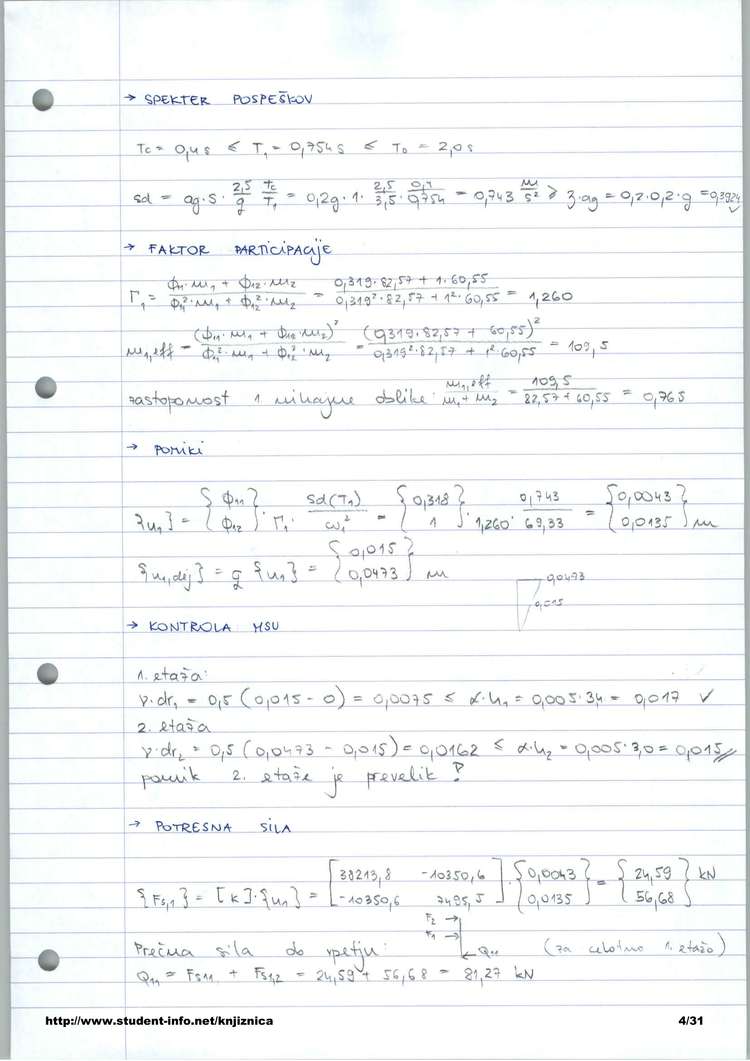 → SPEKTER POSPEŠKOV
Tc = 0,4 s ≤ T₁ = 0,754 s ≤ T_D = 2,0 s
Sd = ag·S· 2,5/q Tc/T₁ = 0,2g·1· 2,5/3,5 · 0,4/0,754 = 0,743 m/s² ≥ β·ag = 0,2·0,2·g = 0,3924 ✓
→ FAKTOR PARTICIPACIJE
Γ₁ = (ϕ₁₁·m₁ + ϕ₁₂·m₂)/(ϕ₁₁²·m₁ + ϕ₁₂²·m₂) = (0,319·82,57 + 1·60,55)/(0,319²·82,57 + 1²·60,55) = 1,260
m₁,eff = (ϕ₁₁·m₁ + ϕ₁₂·m₂)²/(ϕ₁₁²·m₁ + ϕ₁₂²·m₂) = (0,319·82,57 + 60,55)²/(0,319²·82,57 + 1²·60,55) = 109,5
zastopanost 1 nihajne oblike: m₁,eff/(m₁ + m₂) = 109,5/(82,57 + 60,55) = 0,765
→ POMIKI
{u₁} = {ϕ₁₁ ϕ₁₂} · Γ₁ · Sd(T₁)/ω₁² = {0,318 1} · 1,260 · 0,743/69,33 = {0,0043 0,0135} m
{u₁,dej} = q {u₁} = {0,015 0,0473} m
0,0473
0,015
→ KONTROLA MSU
1. etaža:
ν·dr₁ = 0,5 (0,015 - 0) = 0,0075 ≤ α·h₁ = 0,005·3,4 = 0,017 ✓
2. etaža
ν·dr₂ = 0,5 (0,0473 - 0,015) = 0,0162 ≤ α·h₂ = 0,005·3,0 = 0,015
pomik 2. etaže je prevelik!
→ POTRESNA SILA
{Fs,1} = [K]·{u₁} = [38213,8 -10350,6 -10350,6 7495,5] · {0,0043 0,0135} = {24,59 56,68} kN
F₂ →
F₁ →
Prečna sila ob vpetju: ← Q₁₁ (za celotno 1. etažo)
Q₁₁ = Fs₁₁ + Fs₁,₂ = 24,59 + 56,68 = 81,27 kN
http://www.student-info.net/knjiznica 4/31